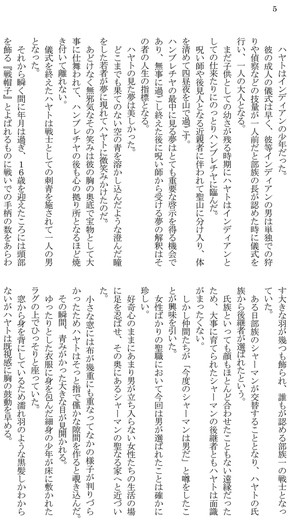 5
ハヤトはインディアンの少年だった。
彼の成人の儀式は早く、彼等インディアンの男は単独での狩
りや偵察などの技量が一人前だと部族の長が認めた時に儀式を
行い、一人の大人となる。
まだ子供としての幼さが残る時期にハヤトはインディアンと
しての仕来たりにのっとりハンブレチヤに臨んだ。
呪い師や後見人となる近親者に伴われて聖山に分け入り、体
を清めて四昼夜を山で過ごす。
ハンブレチヤの最中に見る夢はとても重要な啓示を得る機会で
あり、無事に過ごし終えた後に呪い師から受ける夢の解釈はそ
の者の人生の指標となる。
ハヤトの見た夢は美しかった。
どこまでも果てのない空の青を溶かし込んだような澄んだ瞳
をした若者が夢に現れてハヤトに微笑みかけたのだ。
あどけなく無邪気なその笑みは彼の胸の奥底で宝物として大
事に仕舞われて、ハンブレチヤの後も心の拠り所となるほど焼
き付いて離れない。
儀式を終えたハヤトは戦士としての刺青を施されて一人の男
となった。
それから瞬く間に年月は過ぎ、16歳を迎えたころには頭部
を飾る『戦帽子』とよばれるものに戦いでの手柄の数をあらわ
す大きな羽が幾つも飾られ、誰もが認める部族一の戦士となっ
た。
ある日部族のシャーマンが交替することとなり、ハヤトの氏
族から後継者が選ばれたという。
氏族といっても顔もほとんど合わせたこともない遠縁だった
ため、大事に育てられたシャーマンの後継者ともハヤトは面識
がまったくない。
しかし仲間たちが「今度のシャーマンは男だ」と噂をしたこ
とが興味を引いた。
女性ばかりの聖職において今回は男が選ばれたことは確かに
珍しい。
好奇心のままにあまり男が立ち入らない女性たちの生活の場
に足を忍ばせ、その奥にあるシャーマンの聖なる家へと近づい
た。
小さな窓には布が幾重にも重なってなかの様子が判りづら
かったためハヤトはそっと指で僅かな隙間を作ると覗き込んだ。
その瞬間、青みがかった大きな目が見開かれる。
ゆったりとした衣服に身を包んだ細身の少年が床に敷かれた
ラグの上でひっそりと座っていた。
窓から身を背にしているため濡れ羽のような黒髪しかわから
ないがハヤトは既視感に胸の鼓動を早める。